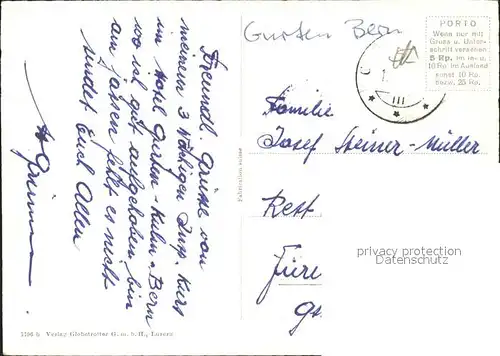 Gurten Bern
PORTO
Wenn nur mit
Gruss u. Unter-
schrift versehen
5 Rp. im In- u.
10 Rp. im Ausland
sonst 10 Rp.
bezw. 25 Rp.
III
Freundl. Grüsse von
meinem 3 wöchigen Insp. Kurs
im Hotel Gurten-Kulm-Bern
wo ich gut aufgehoben bin
am Jassen fehlt es nicht
sendet Euch Allen
Familie
Josef Steiner-Müller
Rest
privacy protection
watermarks
5796 b Verlag Globetrotter G. m. b. H., Luzern